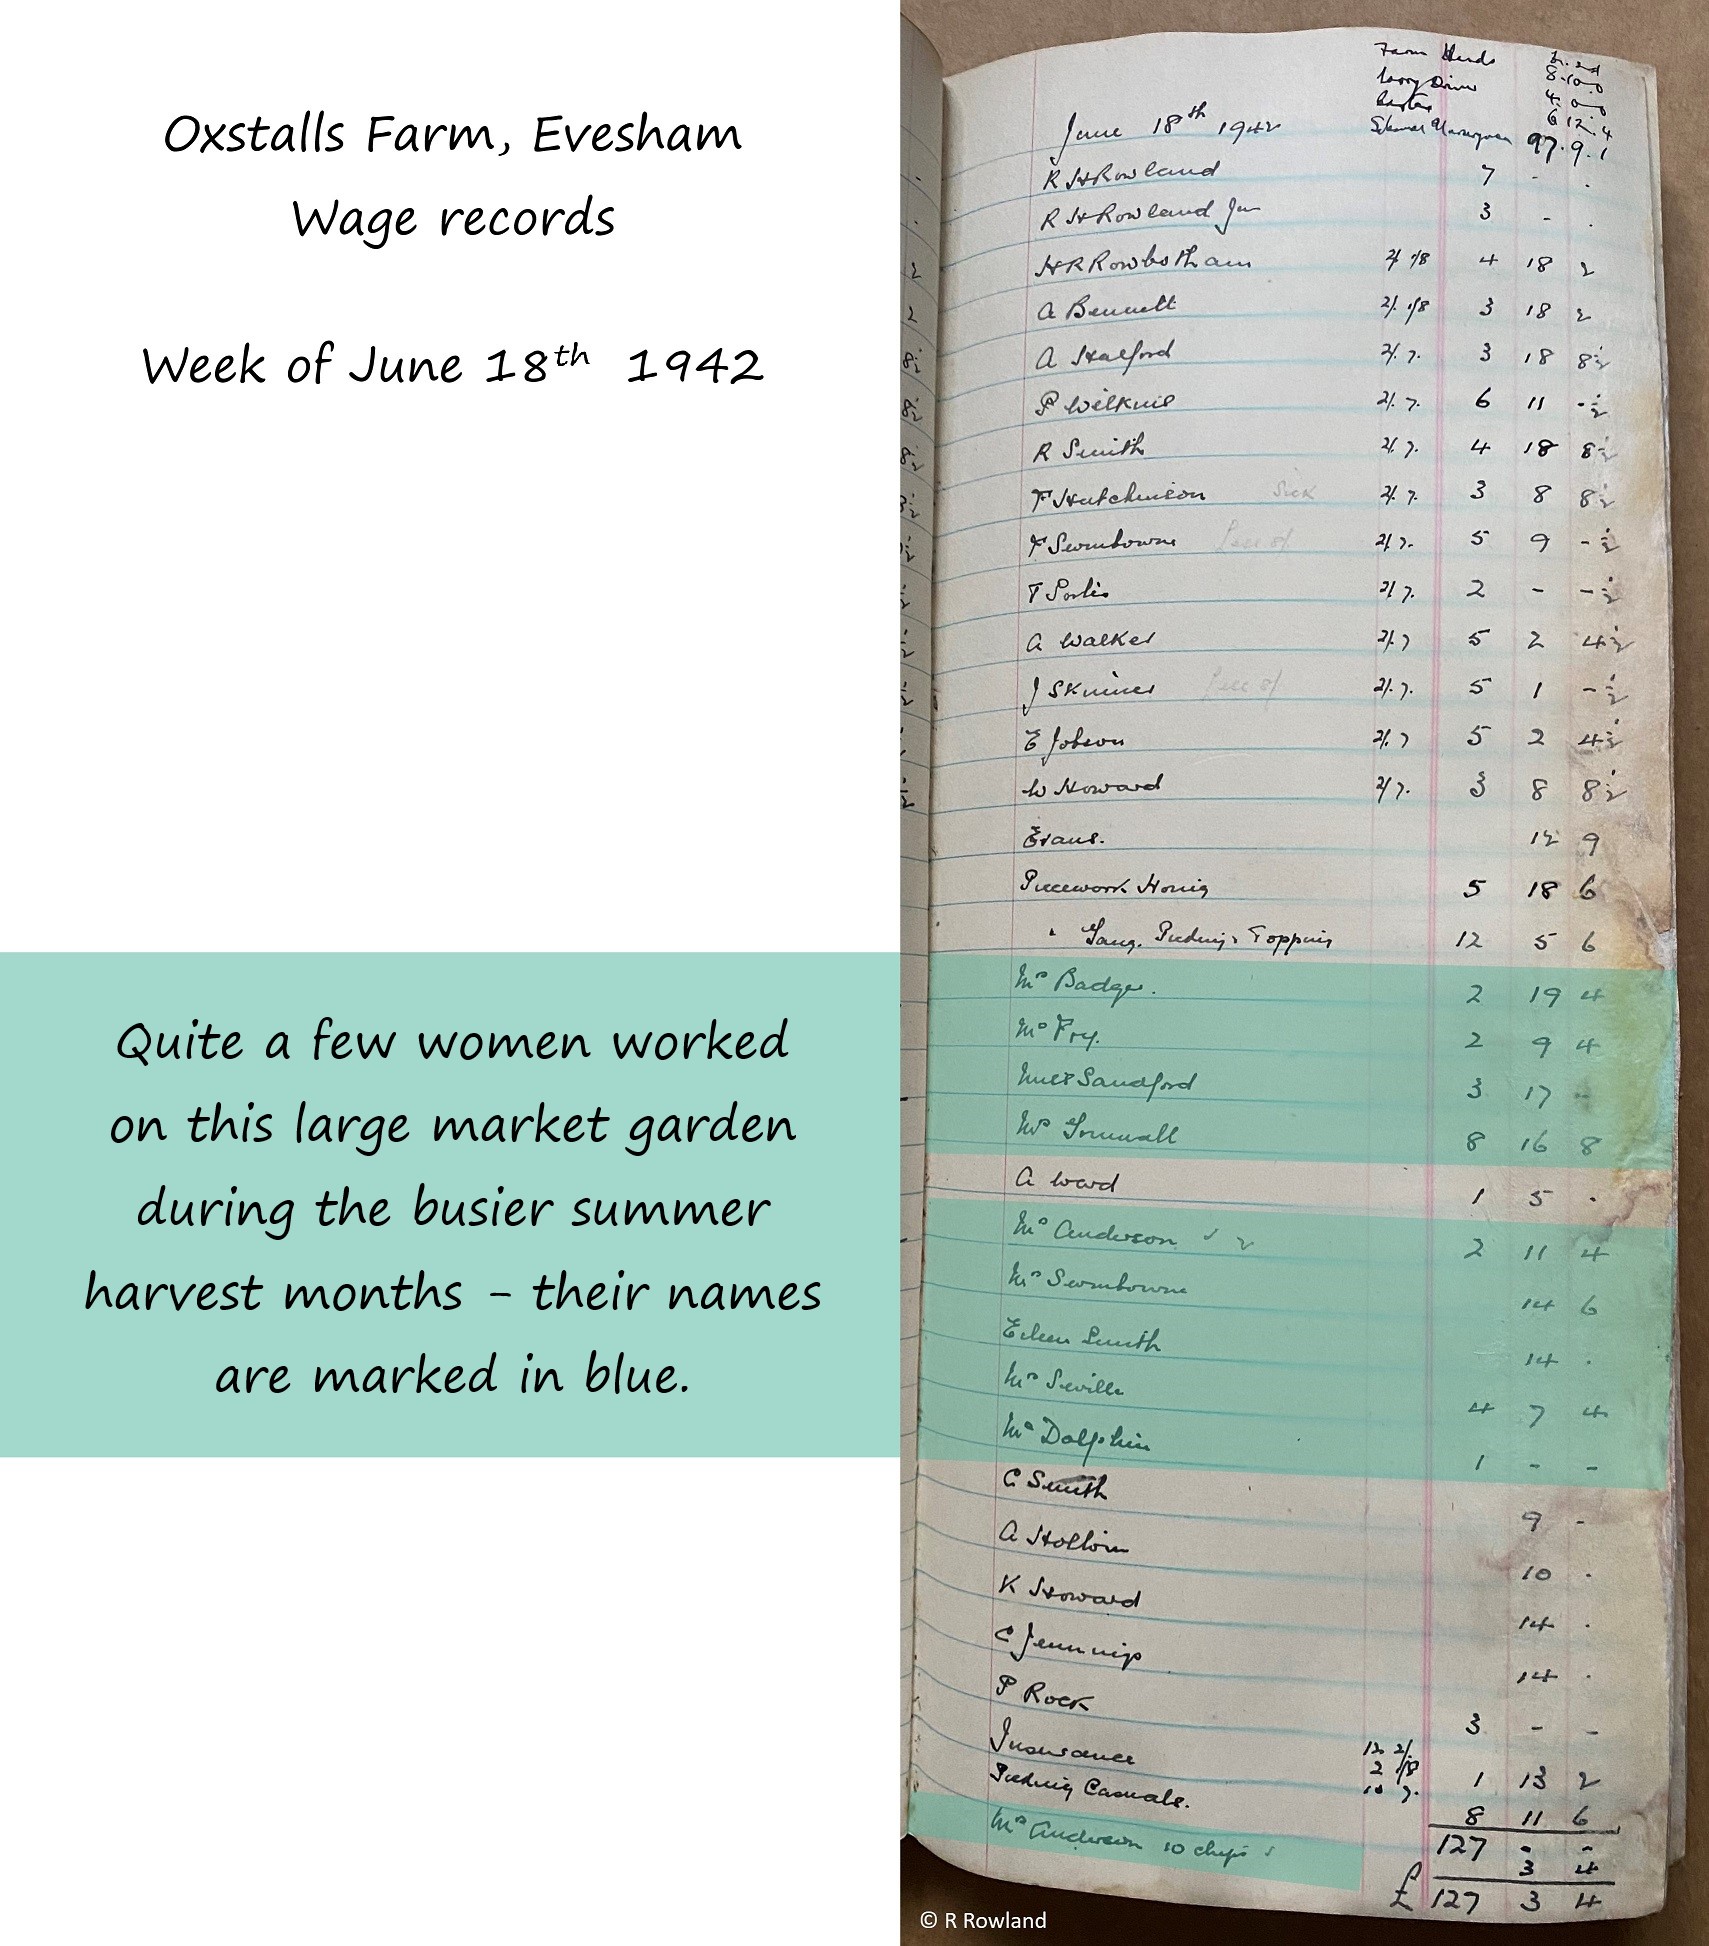 Oxstalls Farm, Evesham
Wage records
Week of June 18th 1942
Quite a few women worked
on this large market garden
during the busier summer
harvest months - their names
are marked in blue.
Farm Hands
Lorry Driver 8.10.0
4.0.0
6 12.4
97.9.1
June 18th 1942
R H Rowland 7 - .
R H Rowland Jun 3 - .
H R Rowbotham 2/ 1/8 4 18 2
A Bennett 2/. 1/8 3 18 2
A Halford 2/. 7. 3 18 8½
P Wilkins 2/. 7. 6 11 -½
R Smith 2/. 7. 4 18 8½
F Hutchinson Sick 2/. 7. 3 8 8½
F Swinbourne 2/ 7. 5 9 -½
T Sorlis 2/ 7. 2 - -½
A Walker 2/. 7 5 2 4½
J Skinner 2/. 7. 5 1 -½
E Jobson 2/. 7 5 2 4½
W Howard 2/ 7. 3 8 8½
Evans. 12 9
Piecework Hoeing 5 18 6
" Gang. Picking & Topping 12 5 6
Mrs Badger. 2 19 4
Mrs Fry. 2 9 4
Miss Sandford 3 17 -
Mrs Grinnall 8 16 8
A Ward 1 5 .
Mrs Anderson 2 11 4
Mrs Swinbourne 14 6
Eileen Smith 14 .
Mrs Seville 4 7 4
Mrs Dolphin 1 - -
C Smith 9 -
A Hollin 10 .
K Howard 14 .
C Jennings 14 .
P Rock 3 - -
Insurance 12 2/. 2 1/8 10 7. 1 13 2
Picking Casuals. 8 11 6
127 - -
Mrs Anderson 10 chips 3 4
£ 127 3 4
© R Rowland